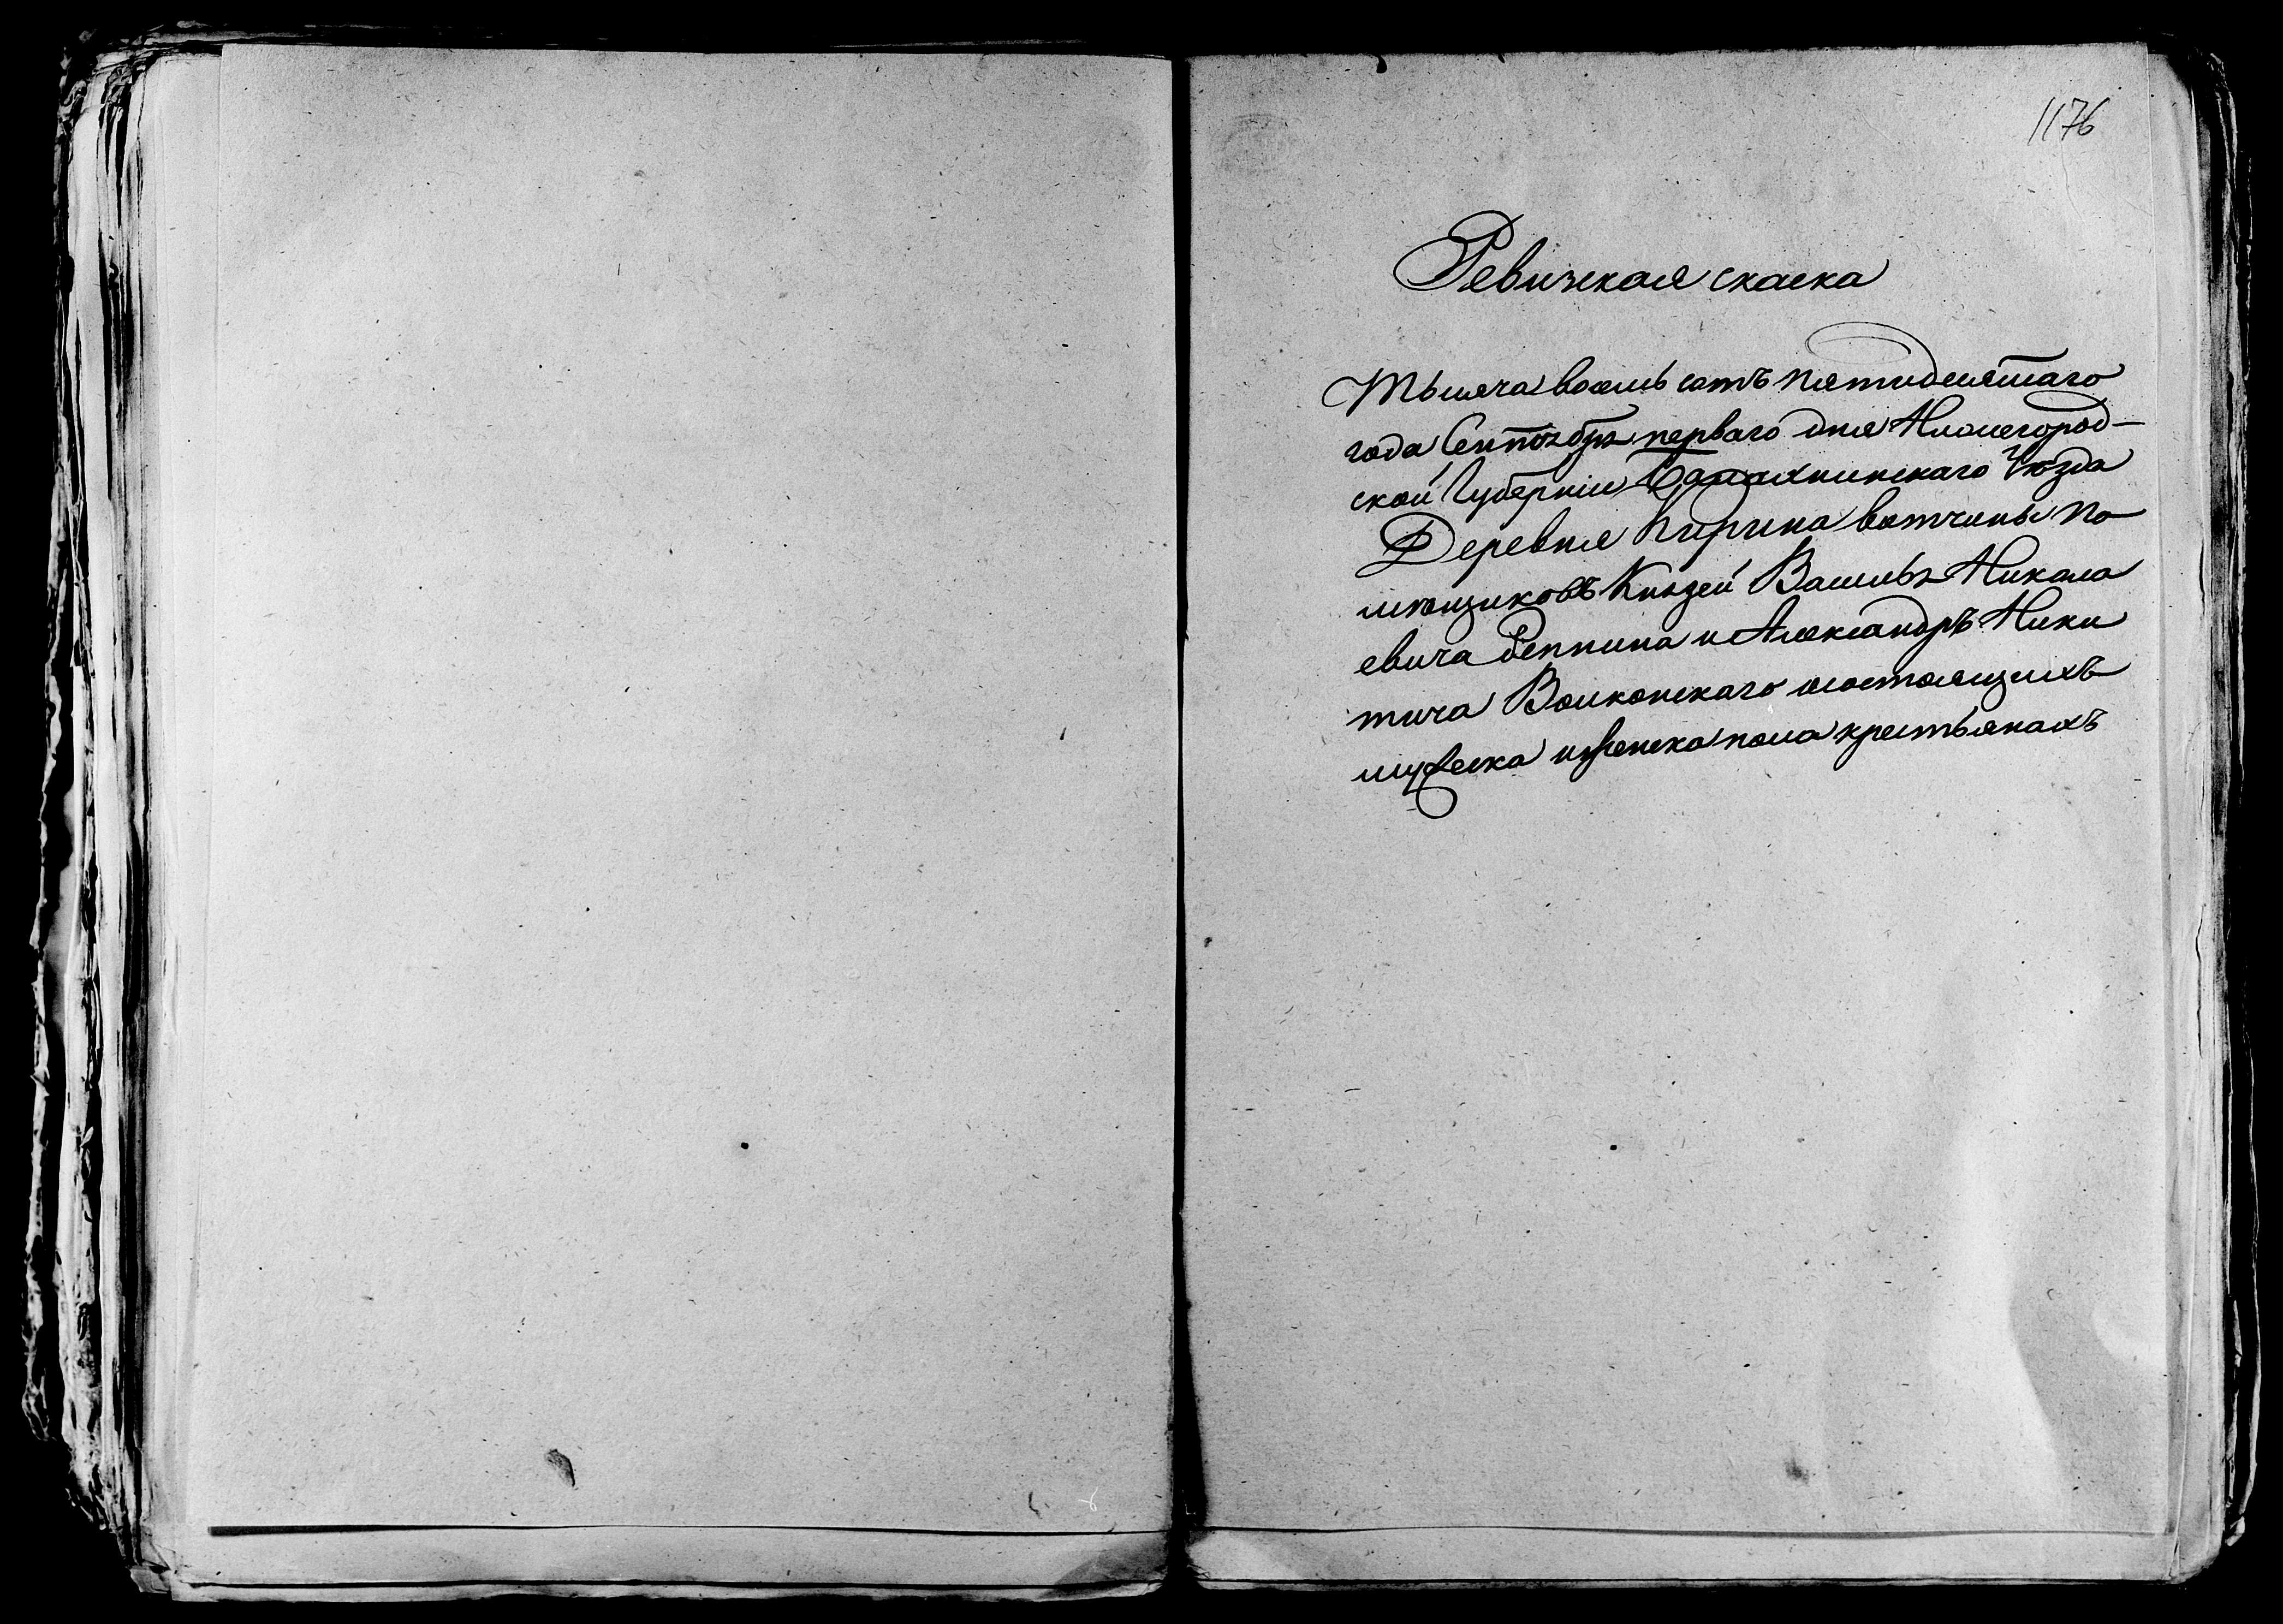 1176
Ревизкая скаска
Тысяча восемь сотъ пятидесятаго
года Сентября перваго дня Нижегород-
ской Губерніи Балахнинскаго Уѣзда
Деревня Кирина вотчины по
мѣщиковъ Князей Василья Никола
евича Репнина и Александръ Ники
тича Волконскаго осостоящихъ
мужеска и женска пола крестьянахъ